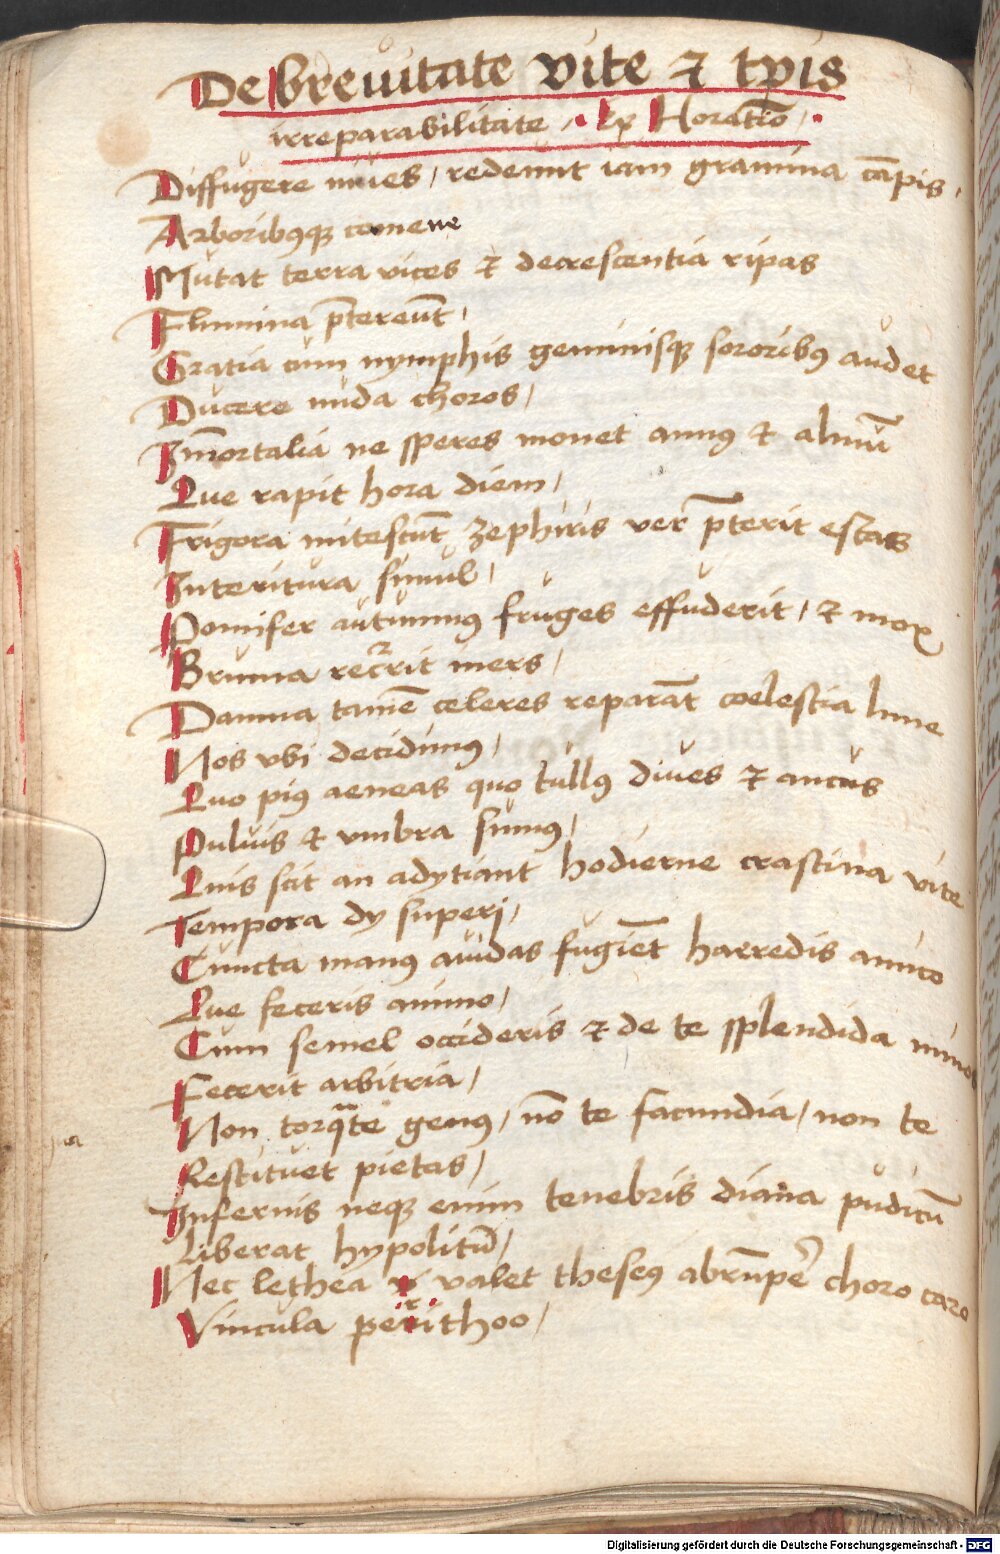 De breuitate vite ⁊ tp̄is
irreparabilitate, Ex Horatio,
Diffugere niues, redeunt iam gramina cāpis,
Arboribꝰqꝫ comene
Mutat terra vices ⁊ decrescentia ripas
Flumina p̄tereūt,
Gratia cum nymphis geminisqꝫ sororibꝰ audet
Ducere nuda choros,
Im̄ortalia ne speres monet annꝰ ⁊ almū
Que rapit hora diem,
Frigora mitescūt zephiris ver p̄terit estas
Interitura simul,
Pomifer autumnus fruges effuderit, ⁊ mox
Bruma recꝛrit iners,
Damna tamē celeres reparāt coelestia lune
Nos vbi decidimꝰ,
Quo piꝰ aeneas quo tullꝰ diues ⁊ ancus
Puluis ⁊ vmbra sumꝰ,
Quis scit an adytiant hodierne crastina vite
Tempora dy superi,
Cuncta manꝰ auidas fugiēt haeredis amico
Que feceris animo,
Cum semel occideris ⁊ de te splendida minos
Fecerit arbitria,
Non torqᵃte genꝰ, nō te facundia, non te
Restituet pietas,
Infernis neqꝫ enim tenebris diana pudicū
Liberat hypolitū,
Nec lethea valet theseꝰ abrūpe᷑ choro caro
Vincula perithoo,
Digitalisierung gefördert durch die Deutsche Forschungsgemeinschaft - DFG